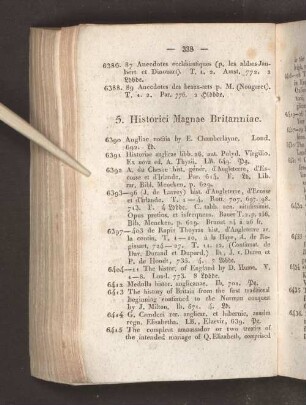 — 238 —
6386. 87 Anecdotes ecclésiastiques (p. les abbés Jaubert et Dinouart). T. 1. 2. Amst. 772. 2
Ldbbe.
6388. 89 Anecdotes des beaux-arts p. M. (Nougaret).
T. 1. 2. Par. 776. 2
5. Historici Magnae Britanniae.
6390 Angliae notitia by E. Chamberlayne. Lond.
692.
6391 Historiae anglicae libb. 26. aut. Polyd. Virgilio.
Ex nova ed. A. Thysii. LB. 649.
6392 A. du Chesne hist. génér. d'Angleterre, d'Ecosse et d'Irlande. Par. 614.
rar. Bibl. Mencken, p. 609.
6393—96 (J. de Larrey) hist. d'Angleterre, d'Ecosse
et d'Irlande. T. 1 — 4. Rott. 707. 697. 98.
713. C. tabb. aen. nitidissimis.
Opus pretios. et infrequens.
Bibl. Mencken, p. 609. Brunet
6397—403 de Rapin Thoyras hist. d'Angleterre
à la Haye, d. de Rogissart, 724—27. T. 11. 12. (Continuat. de
Dav. Durand et Dupard.) Ib., J. v. Duren et
P. de Hondt, 735. 4.
6404—11 The histor. of England by D. Hume. V.
1 — 8. Lond. 773. 8
6412 Medulla histor. anglicanae. Ib. 702.
6413 The history of Britain from the first traditional
beginning continued to the Norman conquest
by J. Milton. Ib. 671.
6414 G. Camdeni rer. anglicar. et hibernic. annales
regn. Elisabetha. LB., Elzevir, 639.
6415 The compleat ambassador or two treaties of
the intended marriage of Q. Elizabeth, comprised